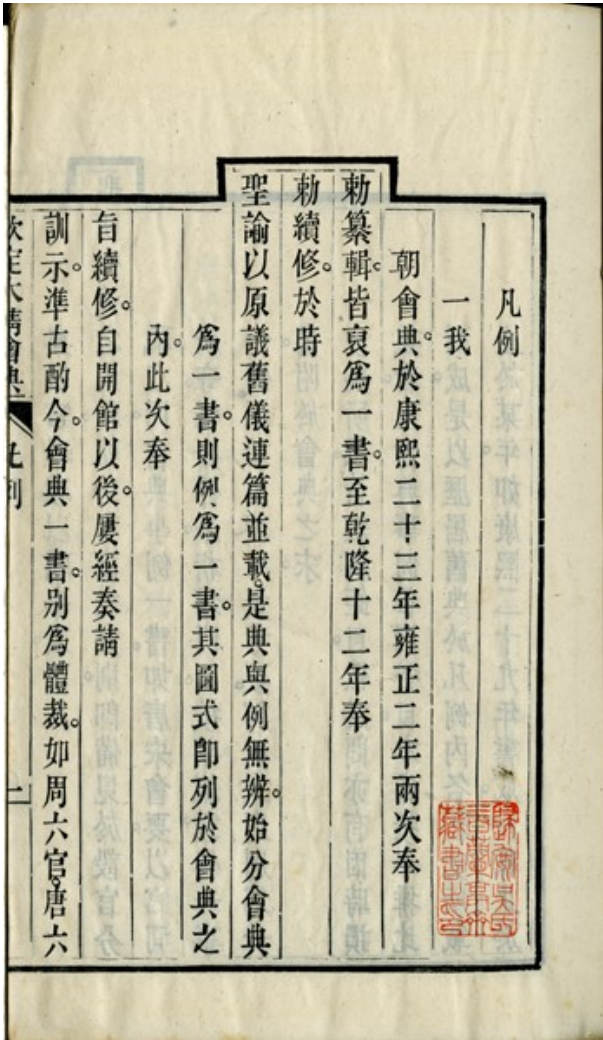 凡例
一我
朝會典。於康熙二十三年雍正二年兩次奉
勅纂輯。皆裒爲一書。至乾隆十二年奉
勅續修。於時
聖諭以原議舊儀連篇並載。是典與例無辨。始分會典
爲一書。則例爲一書。其圖式卽列於會典之
內。此次奉
旨續修。自開館以後。屢經奏請
訓示。準古酌今。會典一書。别爲體裁。如周六官。唐六
欽定大清會典 凡例 一